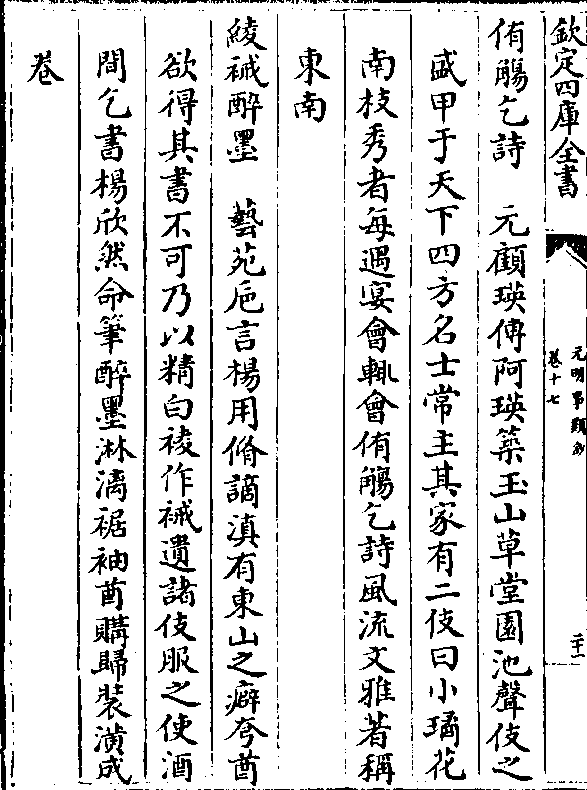 欽定四庫全書
元明事類鈔
卷十七
二十一
侑觴乞詩　元顧瑛傳阿瑛築玉山草堂園池聲伎之
盛甲于天下四方名士常主其家有二伎曰小璚花
南枝秀者每遇宴會輒會侑觴乞詩風流文雅著稱
東南
綾裓醉墨　藝苑巵言楊用脩謫滇有東山之癖夸酋
欲得其書不可乃以精白祾作裓遺諸伎服之使酒
間乞書楊欣然命筆醉墨淋漓裾袖酋購歸裝潢成
卷